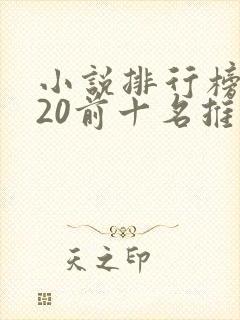 小説排行榜
20前十名推
天之印